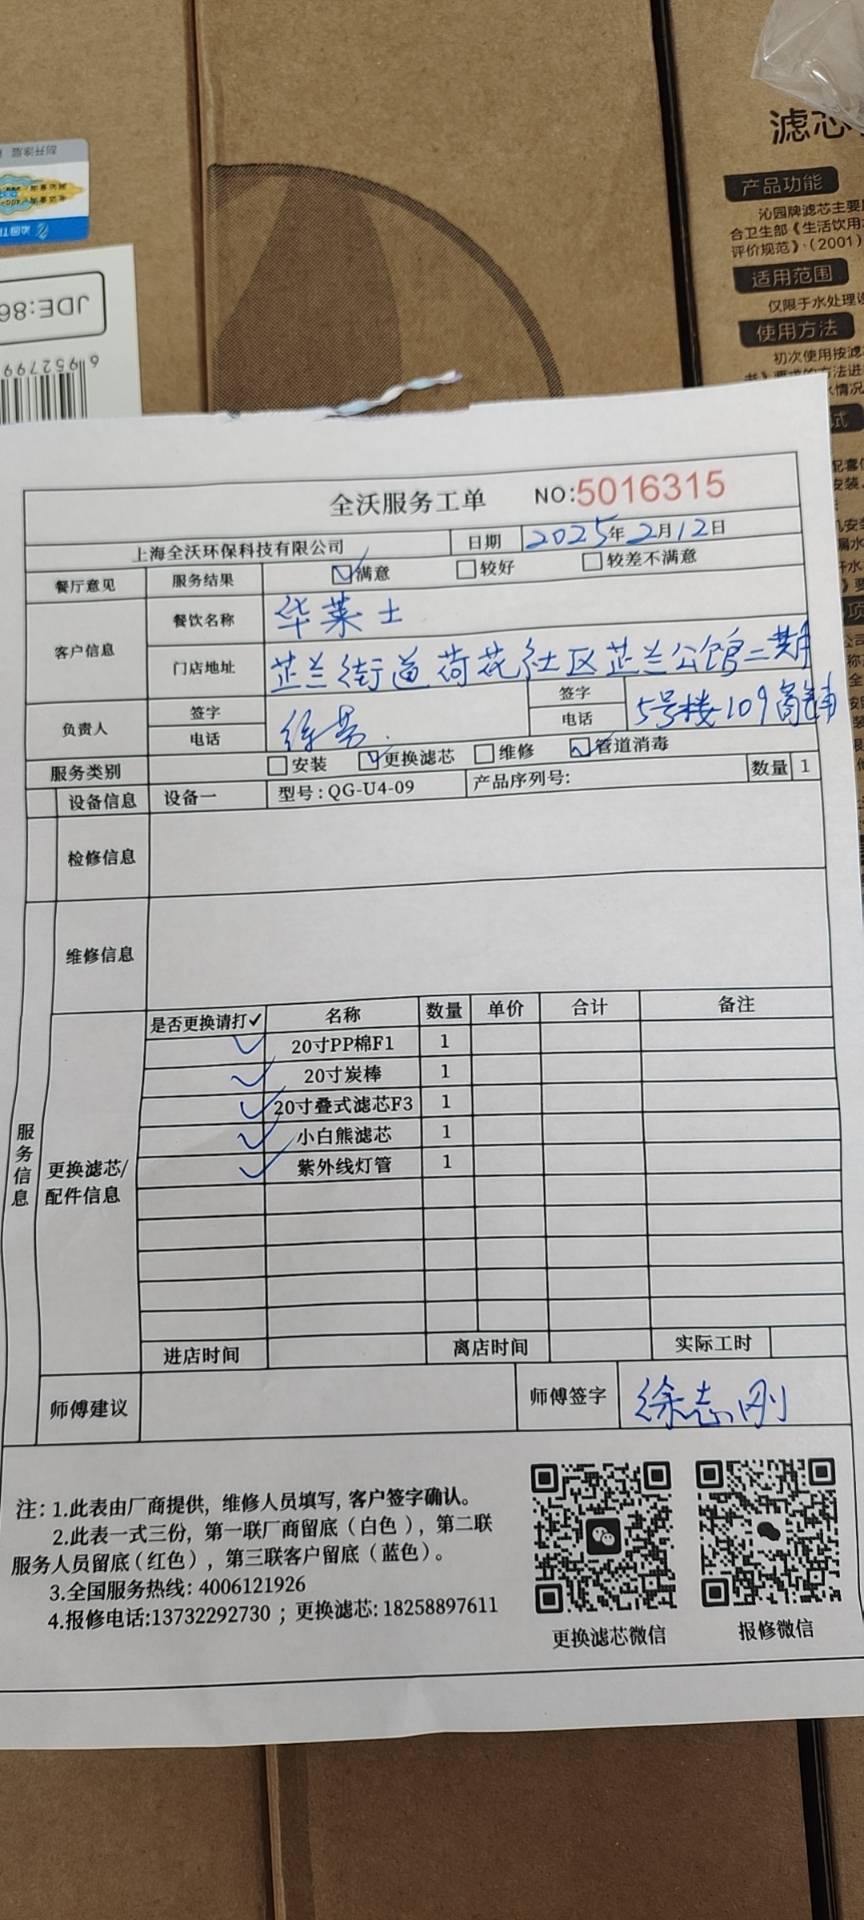 滤芯
产品功能
沁园牌滤芯主要
合卫生部《生活饮用
评价规范》(2001)
适用范围
仅限于水处理
使用方法
初次使用按滤
JDE:86
6 952799
全沃服务工单 NO:5016315
上海全沃环保科技有限公司 日期 2025年2月12日
餐厅意见 服务结果 ☑满意 □较好 □较差不满意
客户信息 餐饮名称 华莱士
门店地址 芷兰街道荷花社区芷兰公馆二期
5号楼109商铺
负责人 签字 签字
电话 电话
服务类别 □安装 ☑更换滤芯 □维修 ☑管道消毒
设备信息 设备一 型号:QG-U4-09 产品序列号: 数量 1
检修信息
维修信息
服务信息
更换滤芯/
配件信息
是否更换请打✓ 名称 数量 单价 合计 备注
✓ 20寸PP棉F1 1
✓ 20寸炭棒 1
✓ 20寸叠式滤芯F3 1
✓ 小白熊滤芯 1
✓ 紫外线灯管 1
进店时间 离店时间 实际工时
师傅建议 师傅签字 徐志刚
注: 1.此表由厂商提供, 维修人员填写, 客户签字确认。
2.此表一式三份, 第一联厂商留底(白色), 第二联
服务人员留底(红色), 第三联客户留底(蓝色)。
3.全国服务热线: 4006121926
4.报修电话:13732292730 ; 更换滤芯: 18258897611
更换滤芯微信 报修微信